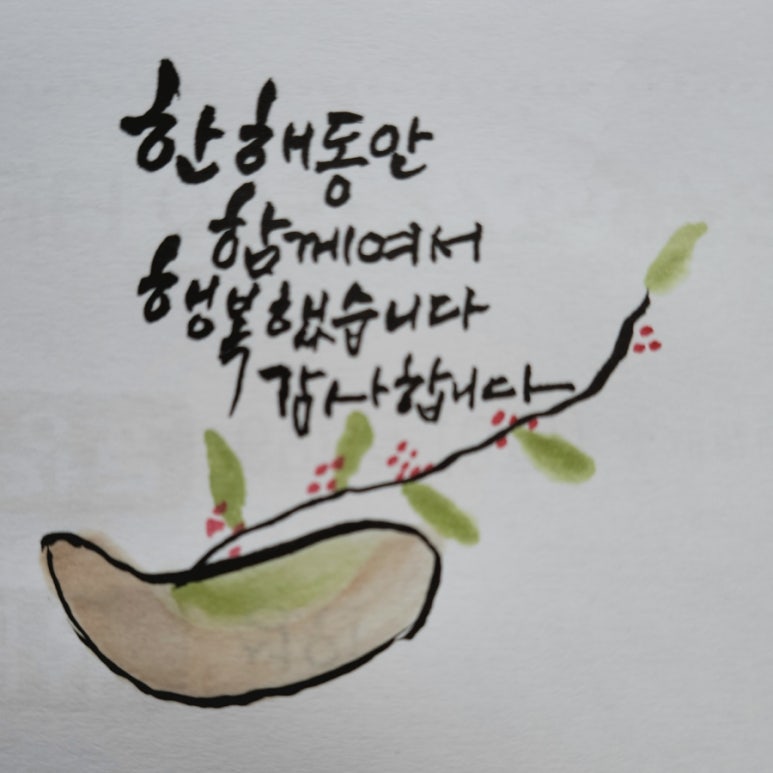 한해동안
함께여서
행복했습니다
감사합니다